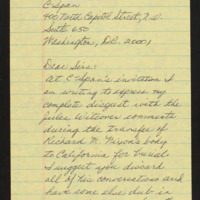 C Span
400 North Capitol Street, N.W.
Suite 650
Washington, D.C. 20001
Dear Sirs:
At C Span's invitation I
am writing to express my
complete disgust with the
Jules Witcover comments
during the transfer of
Richard M. Nixon's body
to California for burial.
I suggest you discard
all of his conversations and
have some else dub in